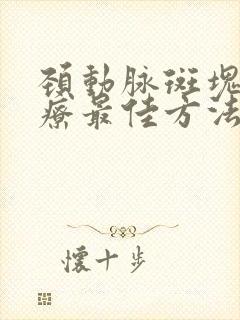 頸動脉斑塊
療最佳方法
懷十步